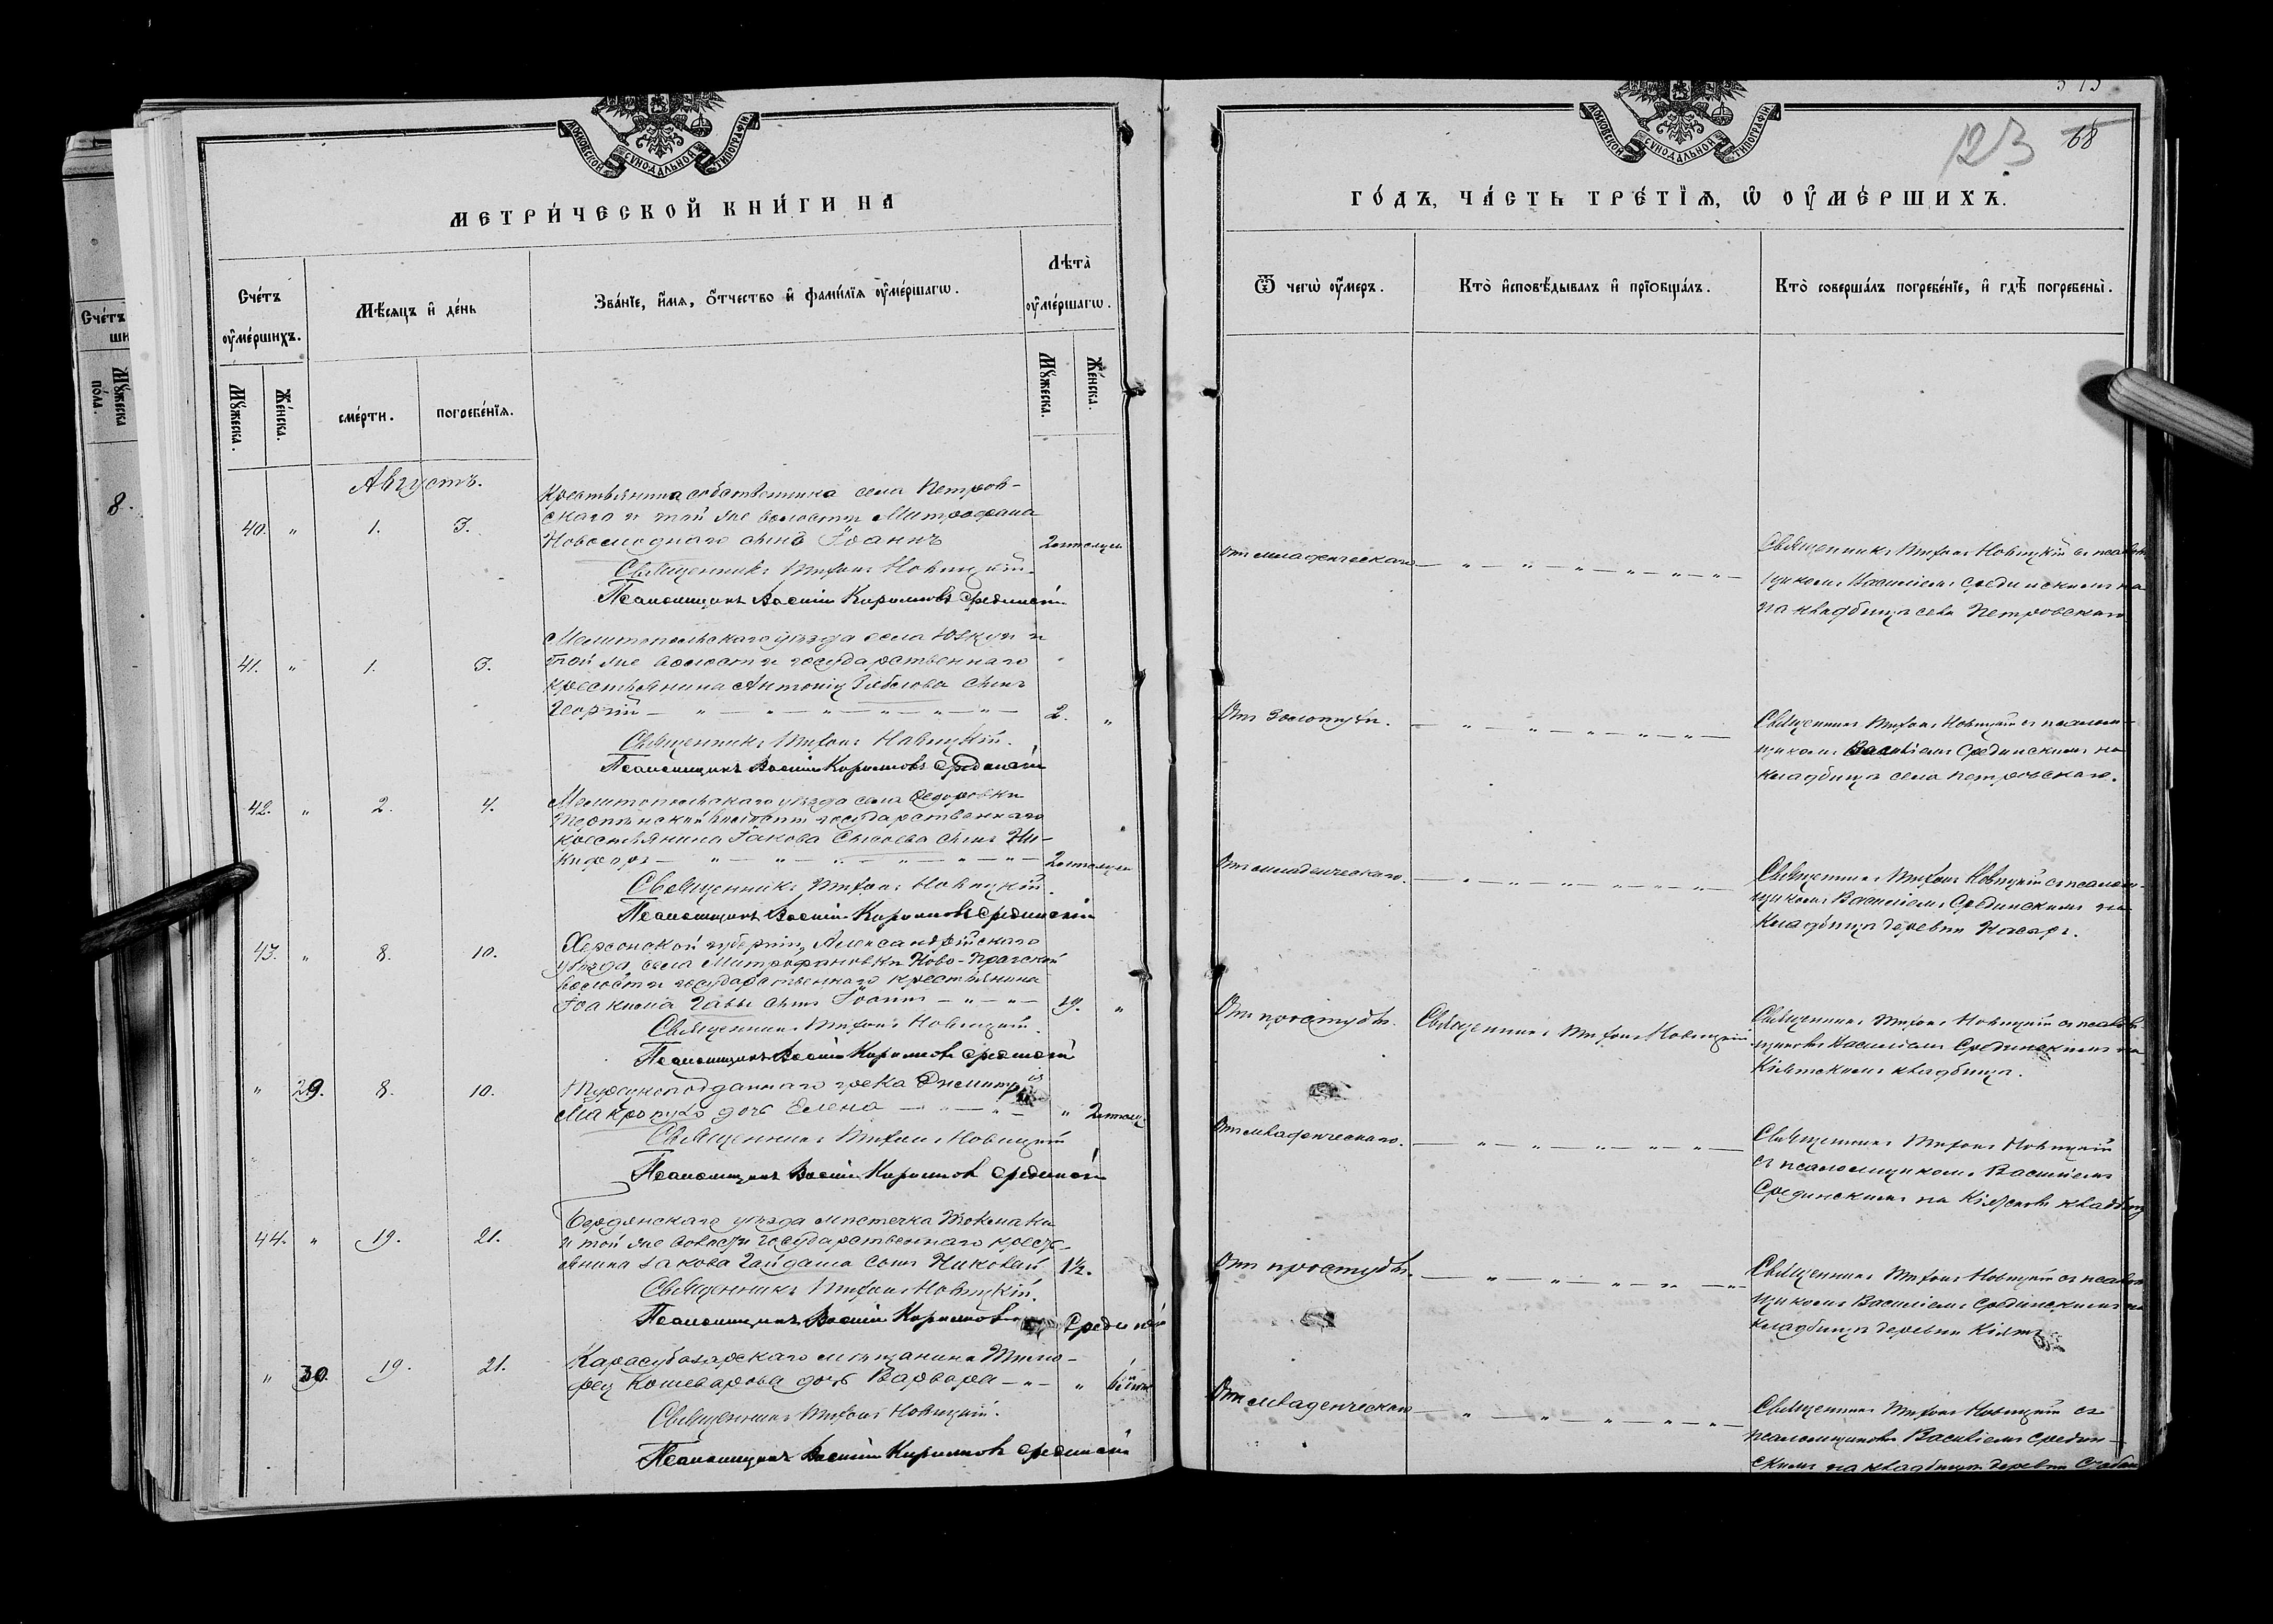 МОСКОВСКОЙ СѴНОДАЛЬНОЙ ТИПОГРАФІИ
МЕТРИ́ЧЕСКОЙ КНИ́ГИ НА
Сче́тъ оу҆ме́ршихъ.
Мѣ́сяцъ и҆ де́нь
Зва́нїе, и҆́мѧ, ѻ҆́тчество и҆ фами́лїѧ оу҆ме́ршагѡ.
Лѣ́та̀ оу҆ме́ршагѡ.
Мꙋ́жеска.
Же́нска.
сме́рти.
погребе́нїѧ.
Мꙋ́жеска.
Же́нска.
Августъ.
40. " 1. 3.
Крестьянина собственника села Петров-
скаго и той же волости Митрофана
сынъ Іоаннъ
Священникъ Тихонъ Новицкій.
Псаломщикъ Василій Корыстовъ Срединскій
41. " 1. 3.
Мелитопольскаго уѣзда села и
той же волости государственнаго
крестьянина Антонія сынъ
Георгій — " — " — " — " — " — 2. "
Священникъ Тихонъ Новицкій.
Псаломщикъ Василій Срединскій
42. " 2. 4.
Мелитопольскаго уѣзда села Ѳедоровки
волости государственнаго
крестьянина Іакова Сысоева сынъ Ни-
кифоръ — " — " — " — " — " —
Священникъ Тихонъ Новицкій.
Псаломщикъ Василій Срединскій
43. " 8. 10.
Херсонской губерніи, Александрійскаго
уѣзда, села Митрофановки Ново-Прагской
волости государственнаго крестьянина
Іоакима Гавы сынъ Іоаннъ — " — " — 19. "
Священникъ Тихонъ Новицкій.
Псаломщикъ Василій Срединскій
" 29. 8. 10.
Турецкоподданнаго грека Димитрія
Макропуло дочь Елена — " — " — "
Священникъ Тихонъ Новицкій
Псаломщикъ Василій Срединскій
44. " 19. 21.
Бердянскаго уѣзда мѣстечка Токмака
и той же волости государственнаго кресть-
янина Іакова Гайдаша сынъ Николай 1½.
Священникъ Тихонъ Новицкій.
Псаломщикъ Василій Срединскій
" 30. 19. 21.
Карасубазарскаго мѣщанина Тимо-
фея Кошеварова дочь Варвара — " — "
Священникъ Тихонъ Новицкій.
Псаломщикъ Василій Срединскій
123
68
МОСКОВСКОЙ СѴНОДАЛЬНОЙ ТИПОГРАФІИ
ГО́ДЪ, ЧА́СТЬ ТРЕ́ТЇѦ, Ѽ ОУ҆МЕ́РШИХЪ.
Ѿ чегѡ̀ оу҆́меръ.
Кто̀ и҆сповѣ́дывалъ и҆ прїобща́лъ.
Кто̀ соверша́лъ погребе́нїе, и҆ гдѣ̀ погребены̀.
Отъ младенческаго — " — " — " — " — " — " —
Священникъ Тихонъ Новицкій съ псалом-
щикомъ Василіемъ Срединскимъ на
на кладбищѣ села Петровскаго
Отъ золотухи. — " — " — " — " — " —
Священникъ Тихонъ Новицкій съ псалом-
щикомъ Василіемъ Срединскимъ на
кладбищѣ села Петровскаго.
Отъ младенческаго. — " — " — " — " — " — "
Священникъ Тихонъ Новицкій съ псалом-
щикомъ Василіемъ Срединскимъ на
кладбищѣ деревни
Отъ простуды.
Священникъ Тихонъ Новицкій.
Священникъ Тихонъ Новицкій съ псалом-
щикомъ Василіемъ Срединскимъ на
Кіятскомъ кладбищѣ.
Отъ младенческаго. — " — " — " — " — " —
Священникъ Тихонъ Новицкій
съ псаломщикомъ Василіемъ
Срединскимъ на кладбищѣ
Отъ простуды. — " — " — " — " — " —
Священникъ Тихонъ Новицкій съ псалом-
щикомъ Василіемъ Срединскимъ на
кладбищѣ деревни Кіятъ
Отъ младенческаго — " — " — " — " — " —
Священникъ Тихонъ Новицкій съ
псаломщикомъ Василіемъ Средин-
скимъ на кладбищѣ деревни
Сче́тъ
Мꙋ́жеска по́ла.
8.